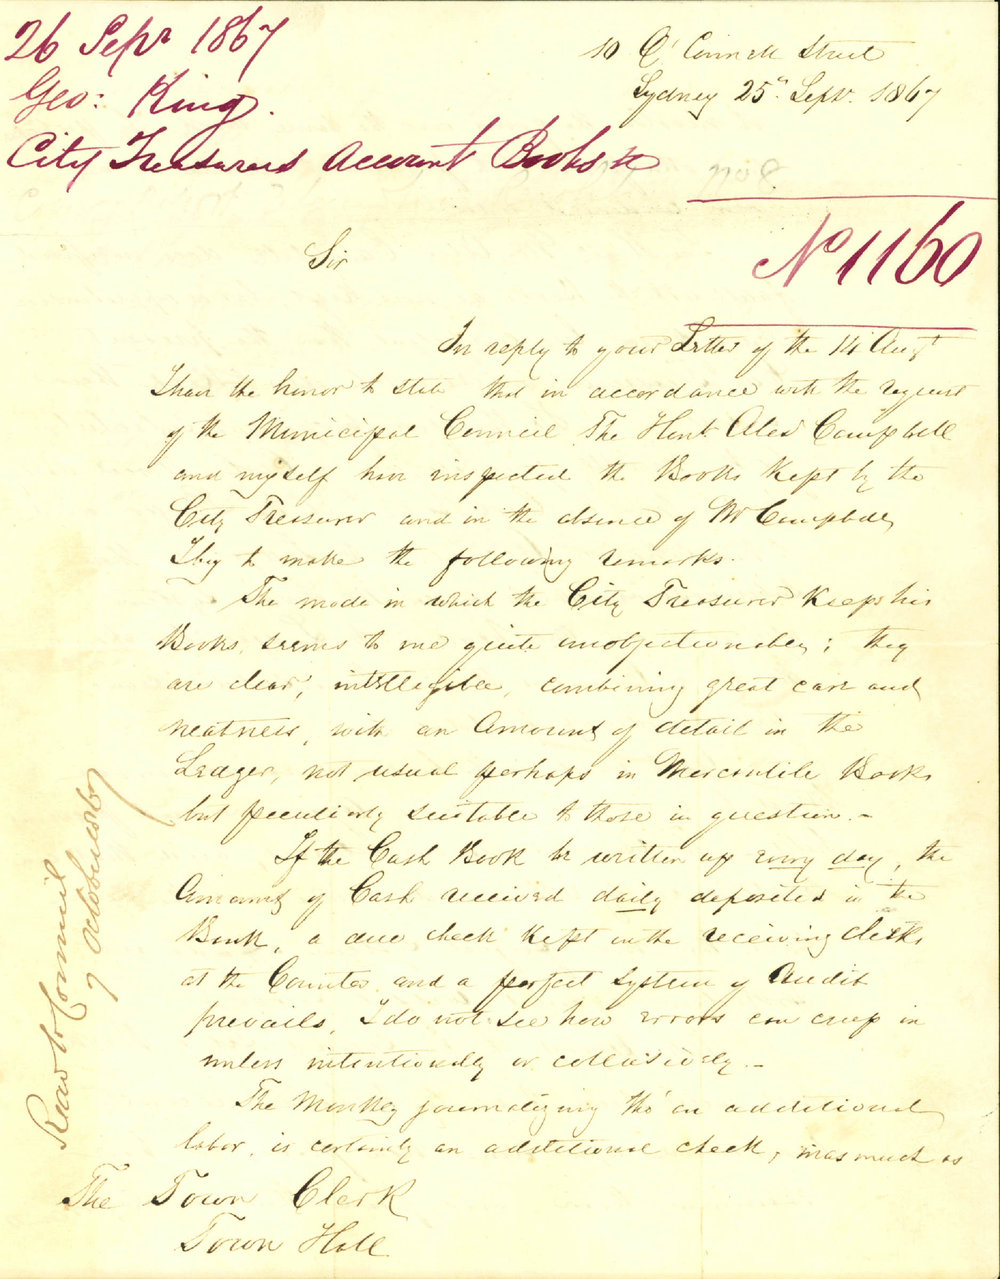 26 Sepr 1867
Geo: King.
City Treasurers Account Books &c
10 O'Connell Street
Sydney 25th Sept. 1867
No 1160
Sir
In reply to your Letter of the 14 Augt
I have the honor to state that in accordance with the request
of the Municipal Council The Honl. Alexr Campbell
and myself have inspected the Books kept by the
City Treasurer and in the absence of Mr Campbell,
I beg to make the following remarks.
The mode in which the City Treasurer keeps his
Books, seems to me quite unobjectionable; they
are clear, intelligible, combining great care and
neatness, with an Amount of detail in the
Ledger, not usual perhaps in Mercantile Books
but peculiarly suitable to those in question.-
If the Cash Book be written up every day, the
Amount of Cash received daily deposited in the
Bank, a due check kept on the receiving Clerks
at the Counter and a perfect system of Audit
prevails, I do not see how errors can creep in
unless intentionally or collusively.-
The Monthly journalizing tho' an additional
labor, is certainly an additional check, inasmuch as
The Town Clerk
Town Hall
Read to Council
7 October